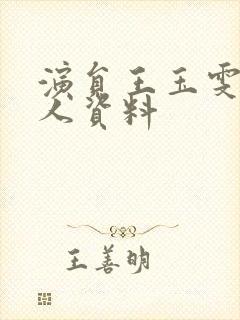 演員王玉雯
人資料
王善明